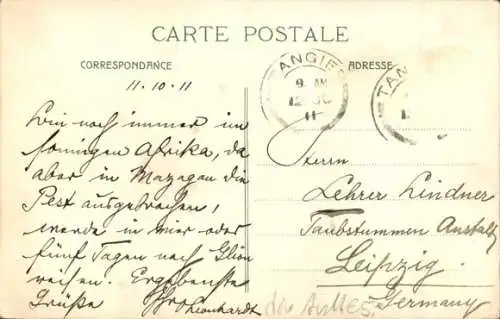 CARTE POSTALE
CORRESPONDANCE
ADRESSE
11.10.11
TANGIER
9 AM
12 OC
11
TAN
Bin noch immer im
sonnigen Afrika, da
aber in Mazagan die
Pest ausgebrochen,
werde in vier oder
fünf Tagen nach
reisen. Ergebenste
Grüße
Leonhardt
Herrn
Lehrer Lindner
Taubstummen Anstalt
Leipzig.
Germany